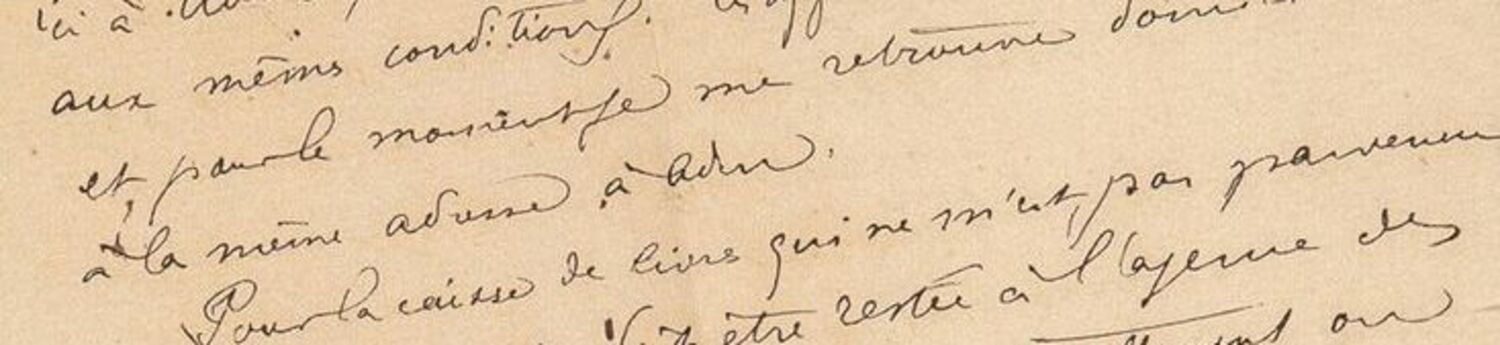 ici à
aux mêmes conditions.
et pour le moment je me retrouve donc
à la même adresse à Aden.
Pour la caisse de livres qui ne m'est pas parvenue
être restée à l'agence des
ou